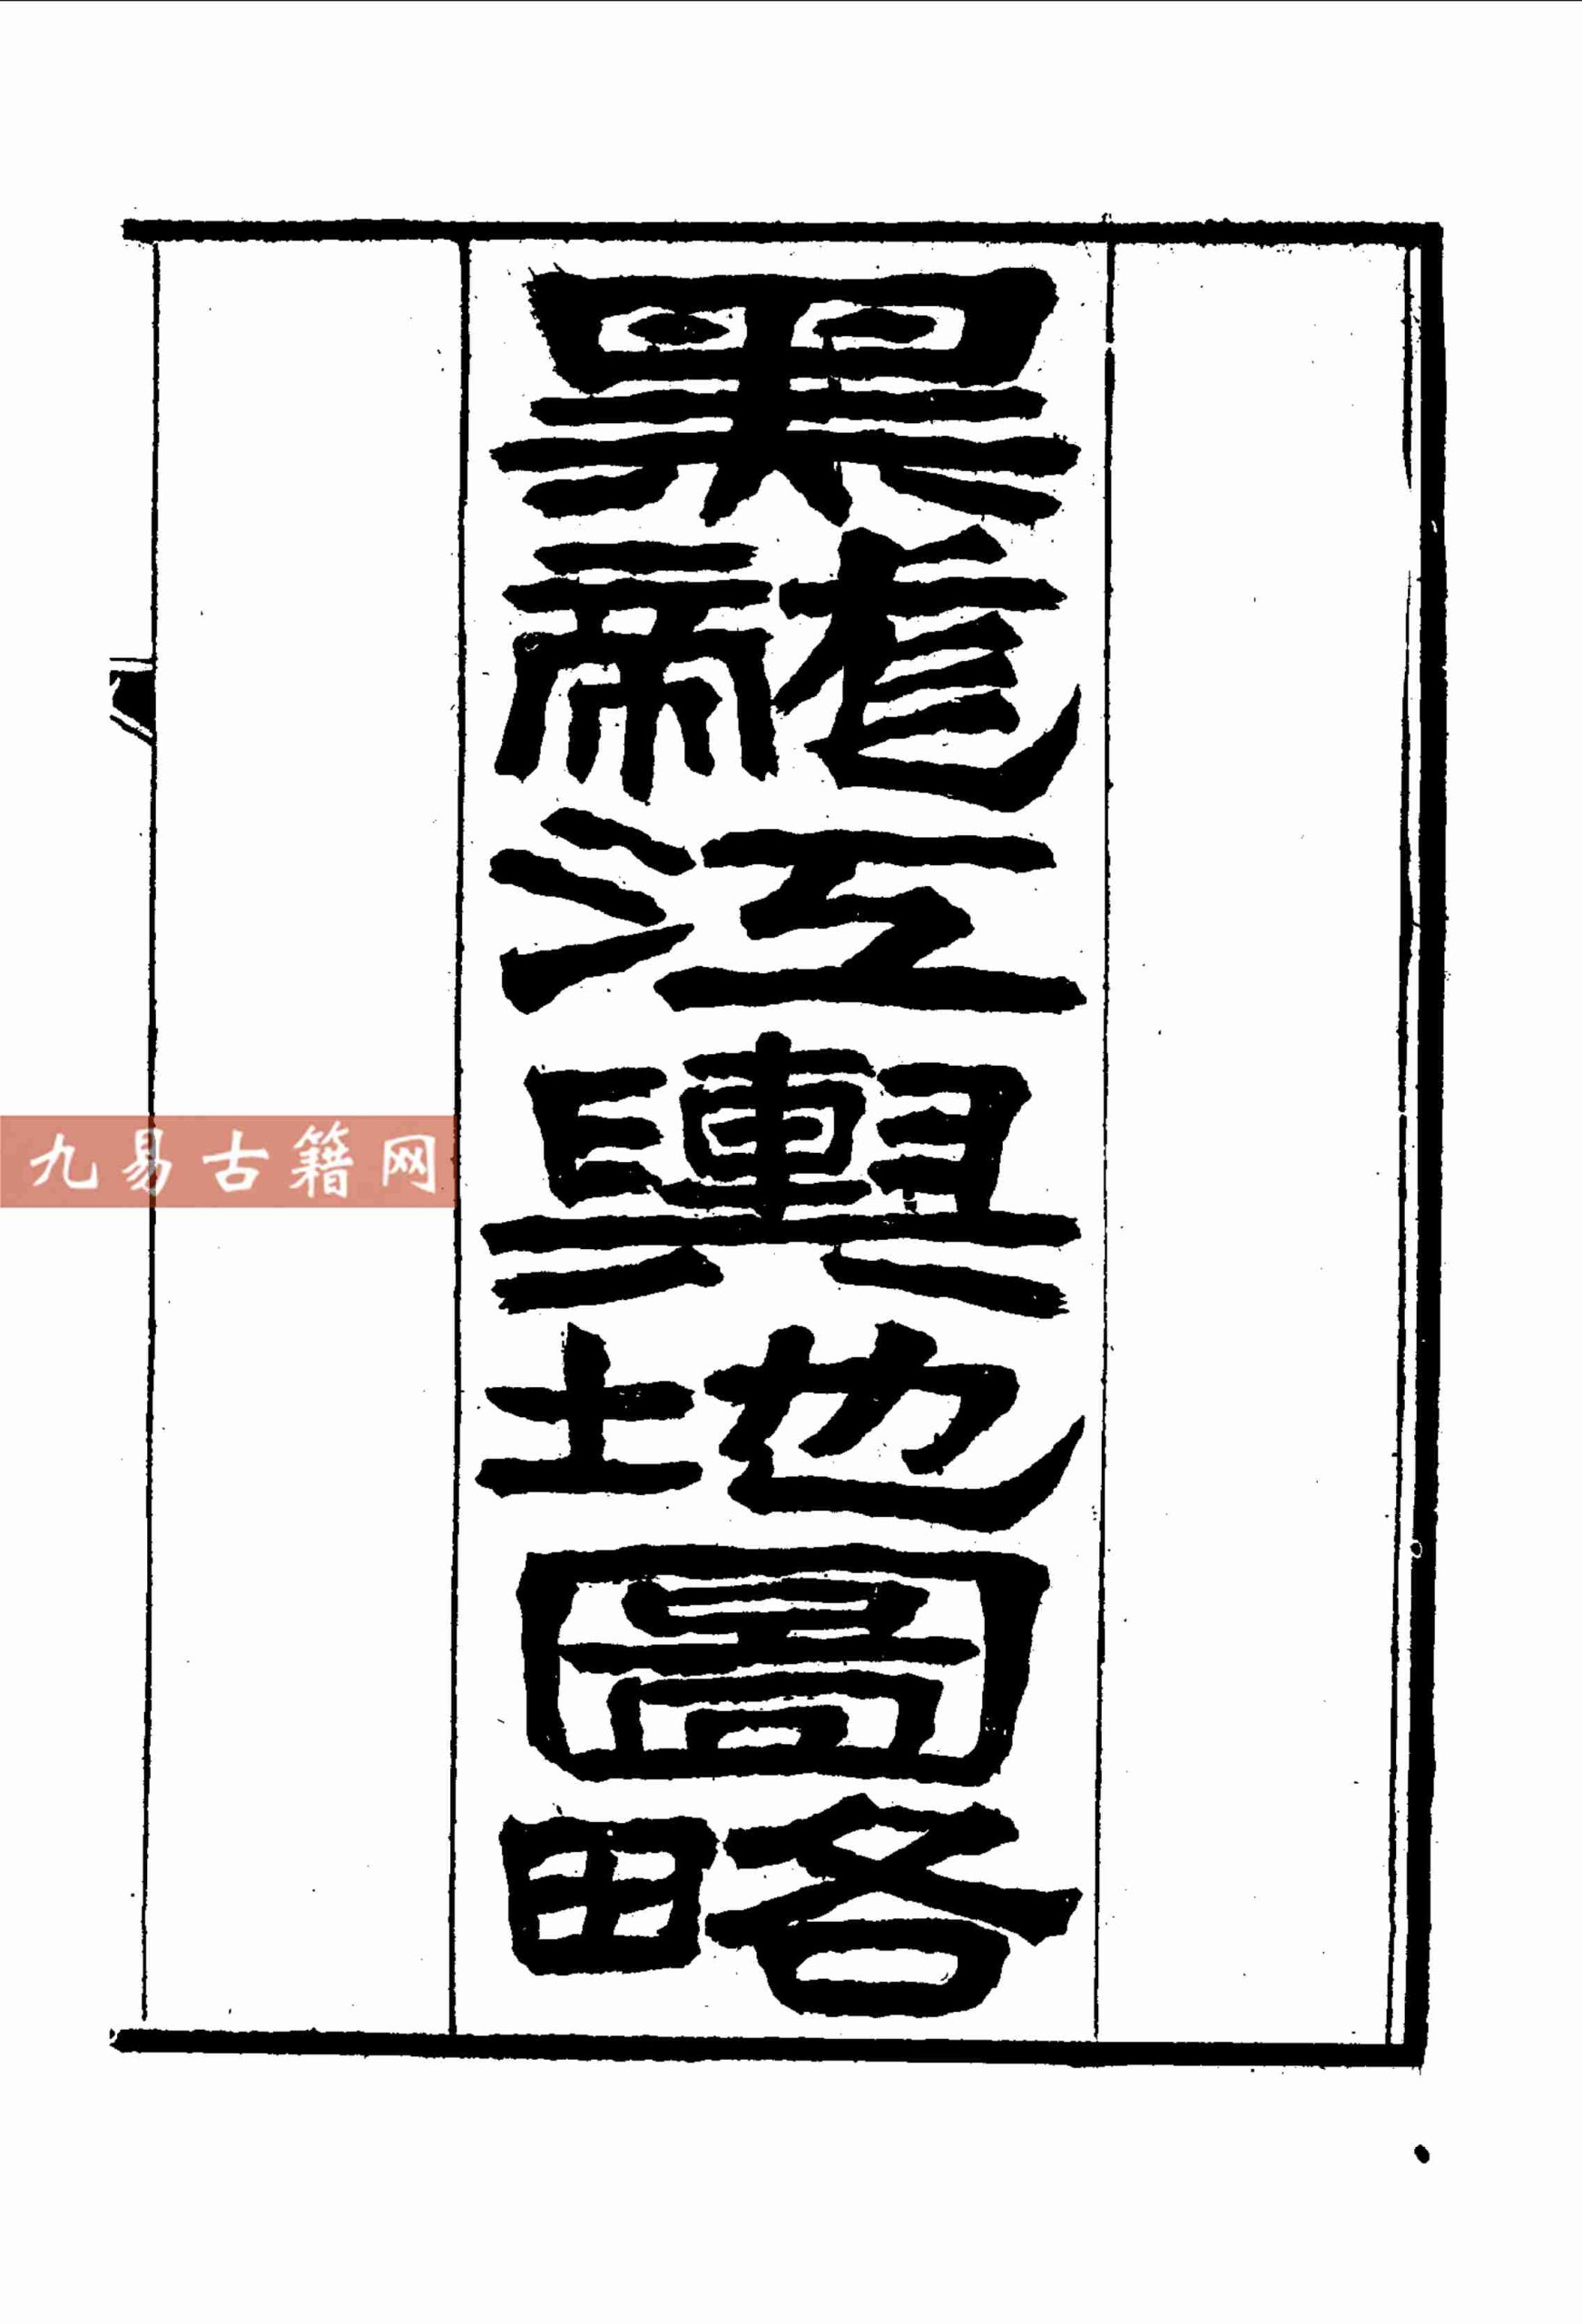 黑龍江輿地圖略
九易古籍网